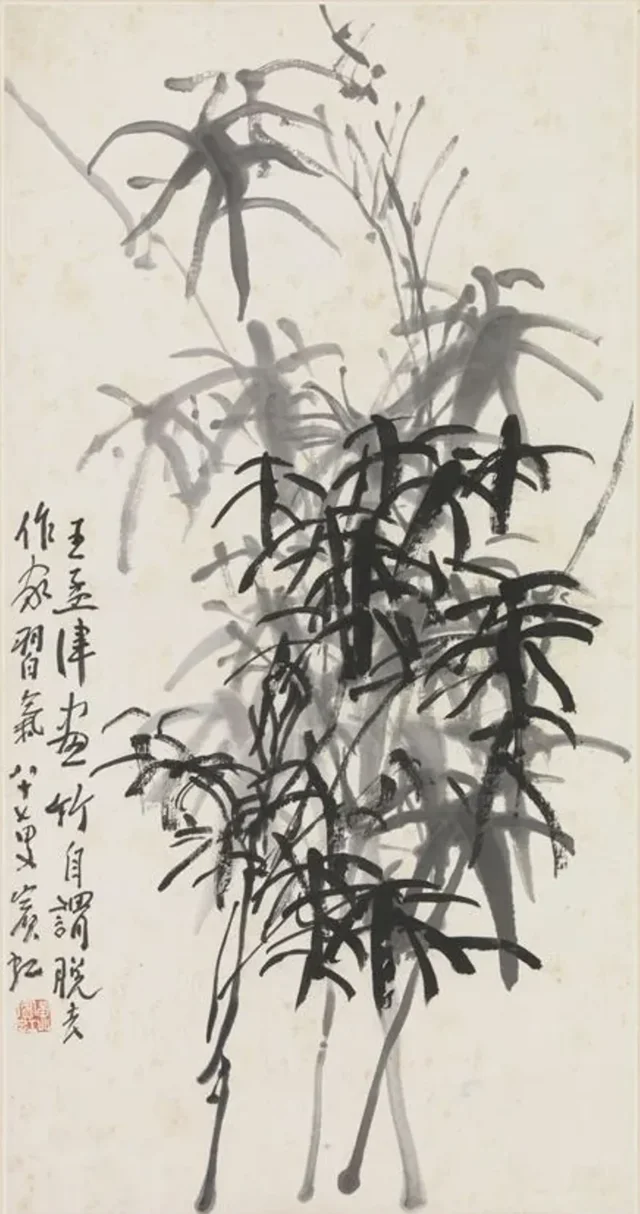 王孟津画竹自谓脱去
作家習氣八十七叟賓虹